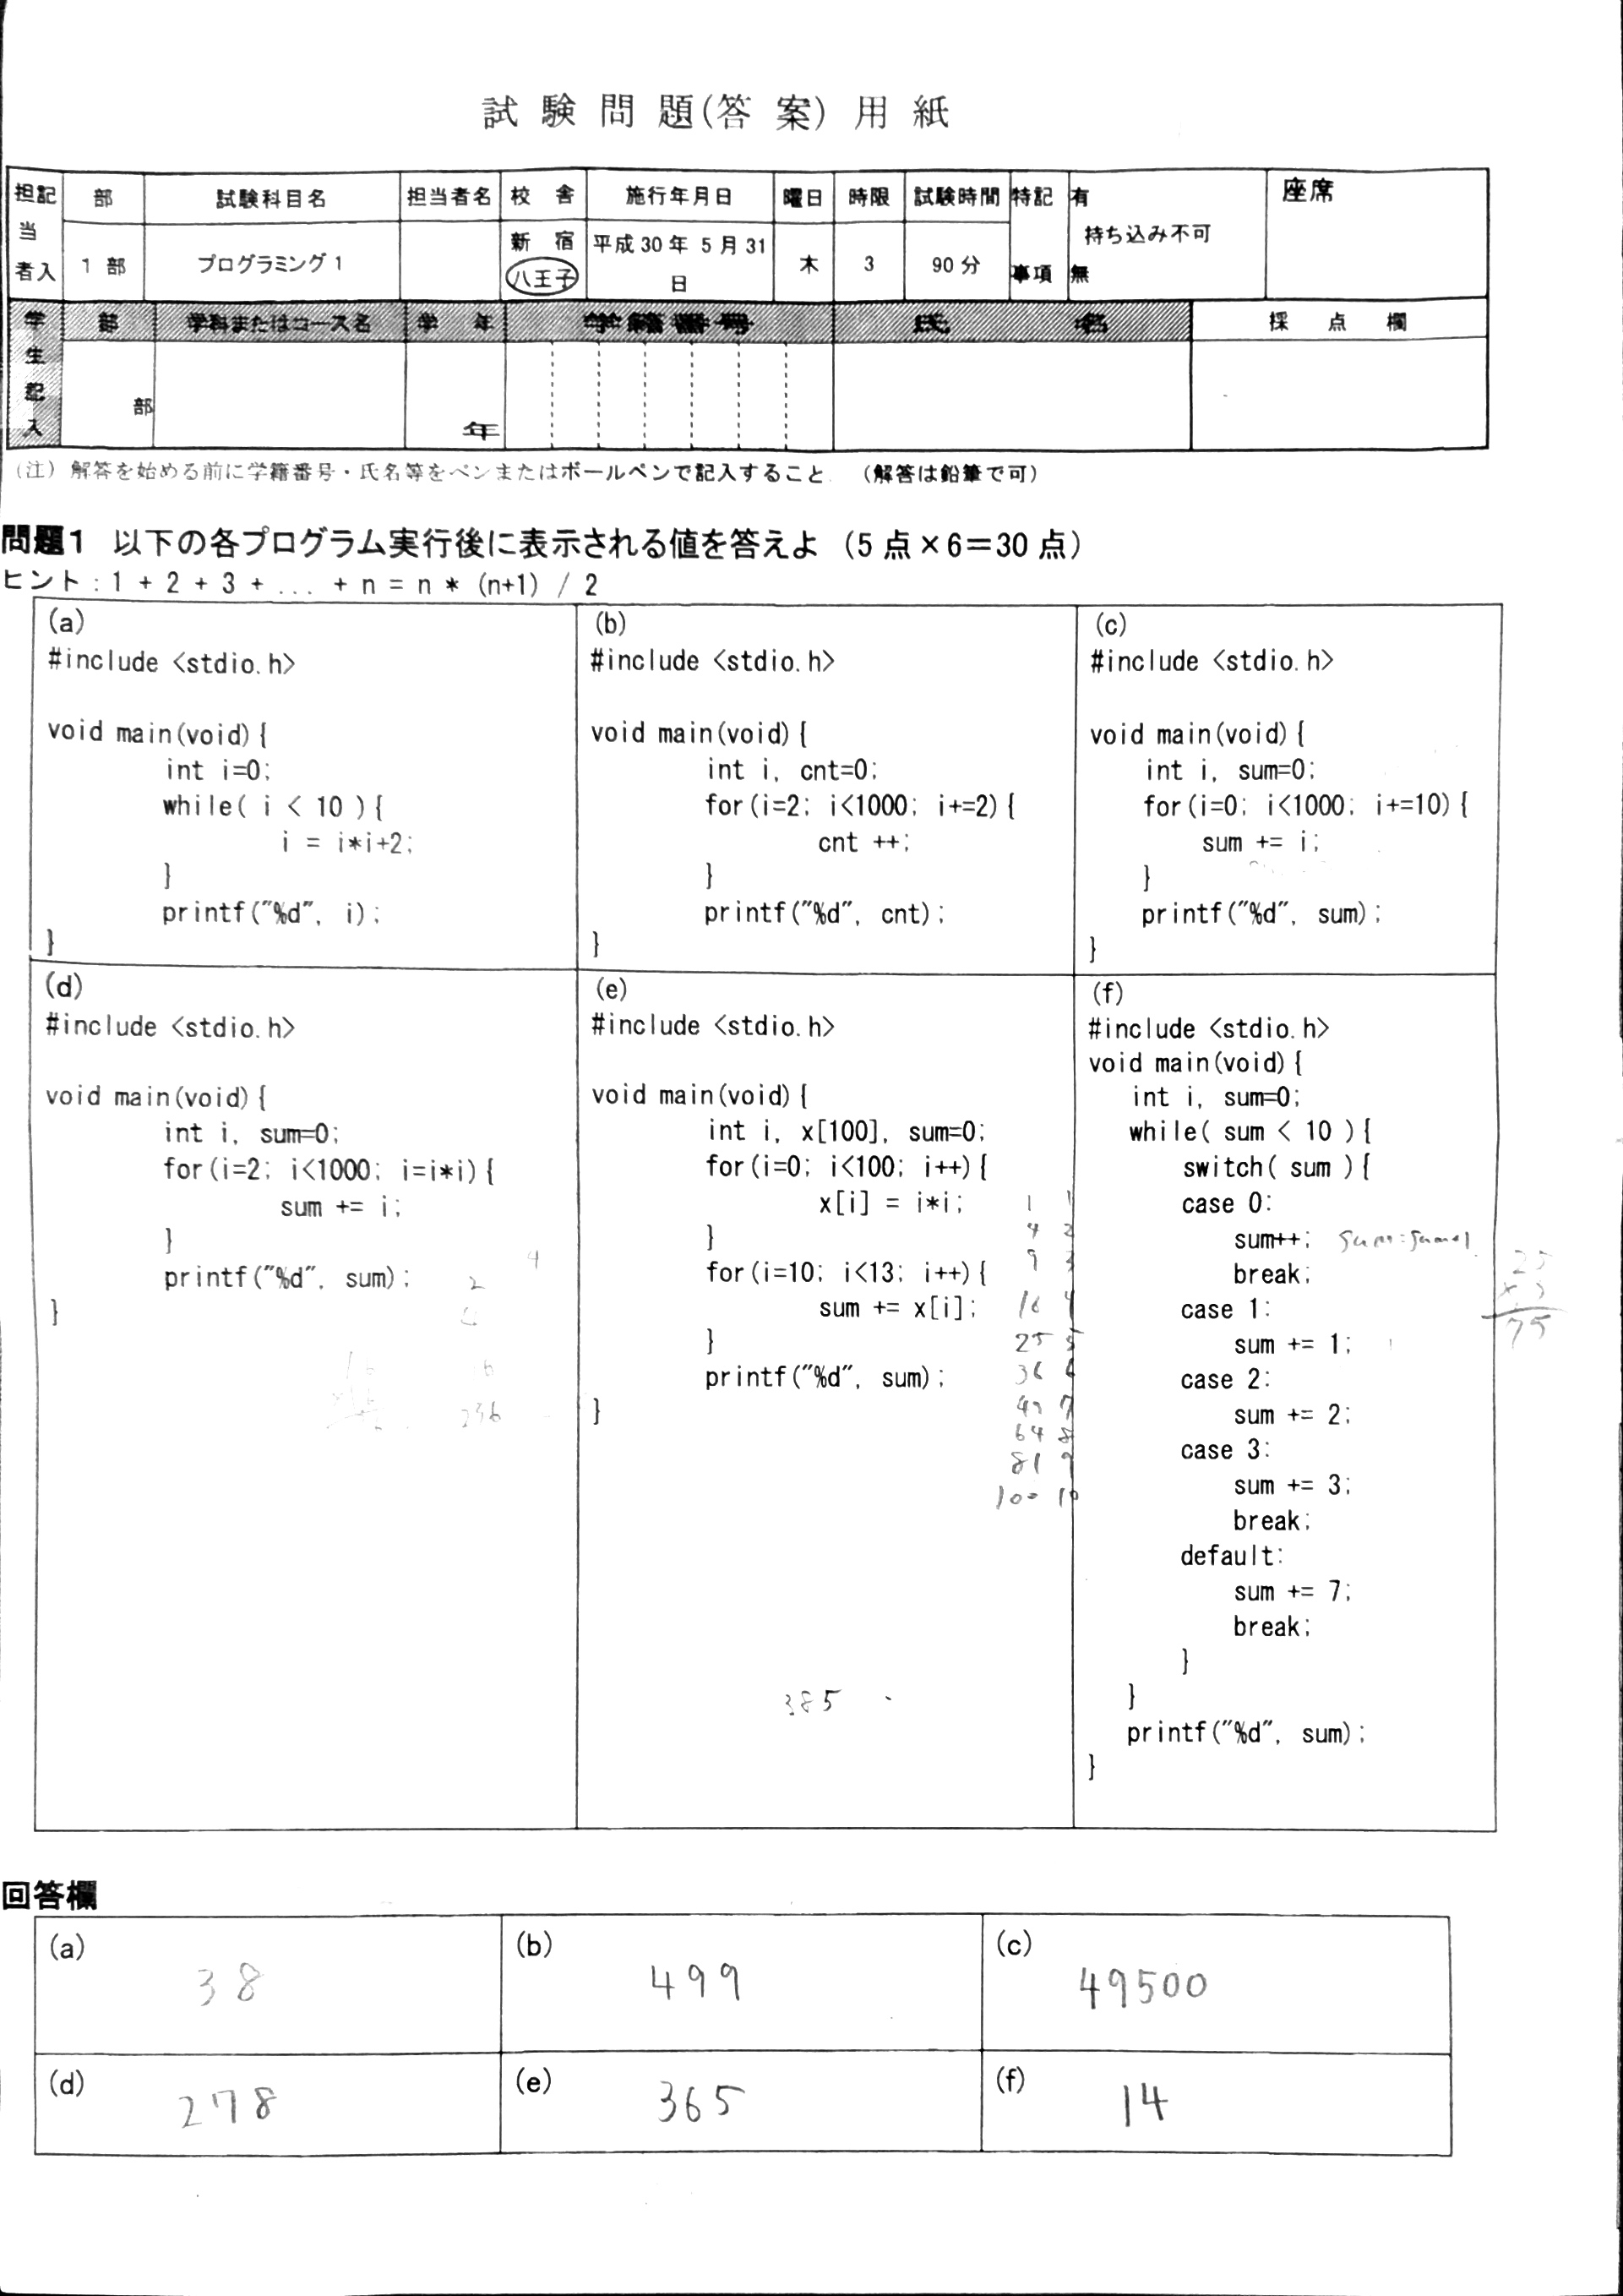 試験問題(答案)用紙
担当者記入
部 試験科目名 担当者名 校舎 施行年月日 曜日 時限 試験時間 特記事項 有 無 座席
1部 プログラミング1 新宿 八王子 平成30年5月31日 木 3 90分 持ち込み不可
学生記入
部 学科またはコース名 学年 学籍番号 氏名 採点欄
部 年
(注) 解答を始める前に学籍番号・氏名等をペンまたはボールペンで記入すること. (解答は鉛筆で可)
問題1 以下の各プログラム実行後に表示される値を答えよ (5点×6=30点)
ヒント:1 + 2 + 3 + ... + n = n * (n+1) / 2
(a)
#include <stdio.h>
void main(void){
int i=0;
while( i < 10 ){
i = i*i+2;
}
printf("%d", i);
}
(b)
#include <stdio.h>
void main(void){
int i, cnt=0;
for(i=2; i<1000; i+=2){
cnt ++;
}
printf("%d", cnt);
}
(c)
#include <stdio.h>
void main(void){
int i, sum=0;
for(i=0; i<1000; i+=10){
sum += i;
}
printf("%d", sum);
}
(d)
#include <stdio.h>
void main(void){
int i, sum=0;
for(i=2; i<1000; i=i*i){
sum += i;
}
printf("%d", sum);
}
4
2
(e)
#include <stdio.h>
void main(void){
int i, x[100], sum=0;
for(i=0; i<100; i++){
x[i] = i*i;
}
for(i=10; i<13; i++){
sum += x[i];
}
printf("%d", sum);
}
1 1
4 2
9 3
16 4
25 5
36 6
49 7
64 8
81 9
100 10
385
(f)
#include <stdio.h>
void main(void){
int i, sum=0;
while( sum < 10 ){
switch( sum ){
case 0:
sum++; sum=sum+1
break;
case 1:
sum += 1;
case 2:
sum += 2;
case 3:
sum += 3;
break;
default:
sum += 7;
break;
}
}
printf("%d", sum);
}
25
×3
75
回答欄
(a) 38
(b) 499
(c) 49500
(d) 278
(e) 365
(f) 14